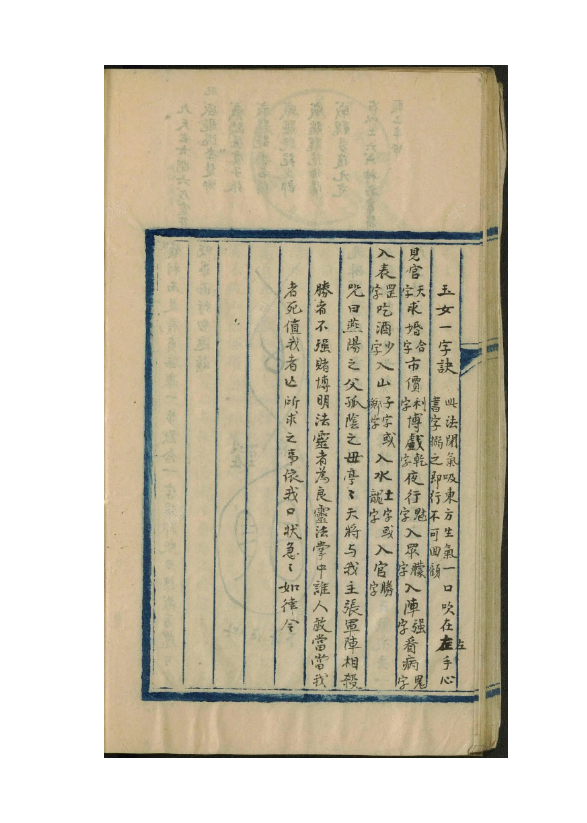 玉女一字訣 此法閉氣吸東方生氣一口吹在左手心
書字搦之即行不可回顧
見官天字求婚合字市價利字博戲乾字夜行魁字入眾朦字入陣强字看病鬼字
入表罡字吃酒少字入山子字或鄉字入水土字或龍字入官勝字
咒曰燕陽之父孤陰之毋亭〻天將与我主張軍陣相殺
勝者不强賭博明法靈者為良靈法掌中誰人敢當當我
者死值我者亡所求之事依我口狀急〻如律令